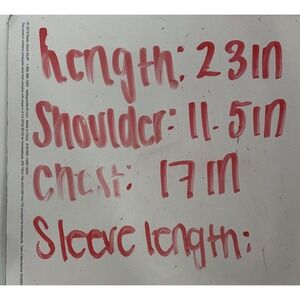 Length: 23in
Shoulder: 11.5in
Chest: 17in
Sleeve length: